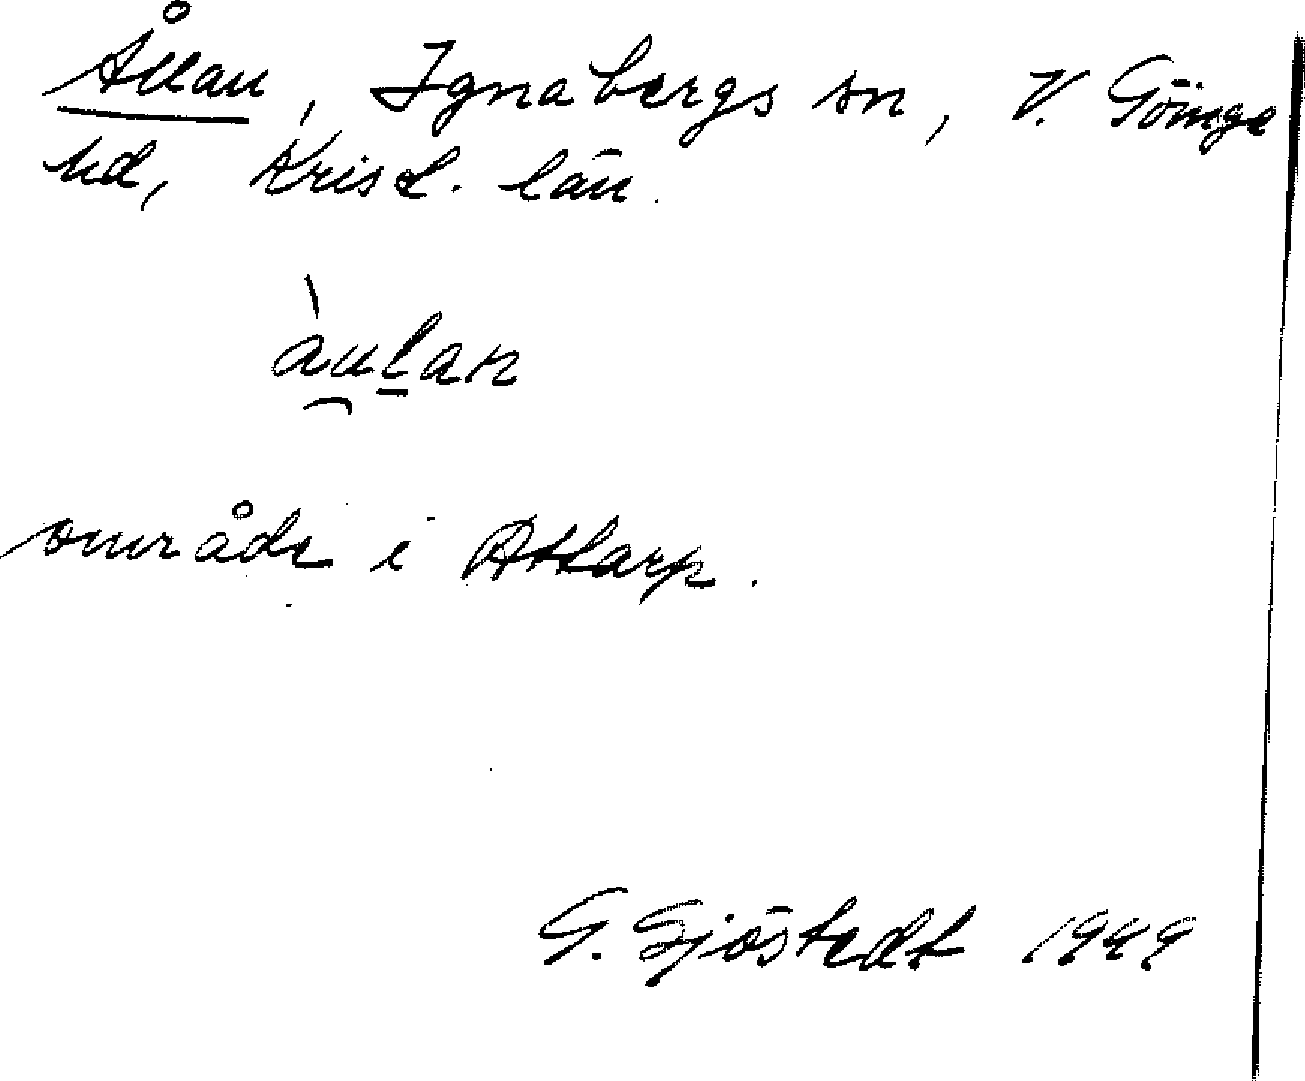 Ållan, Ignabergs sn, V. Göinge
hd, Krist. län.
àu̯l̠an
område i Attarp.
G. Sjöstedt 1949